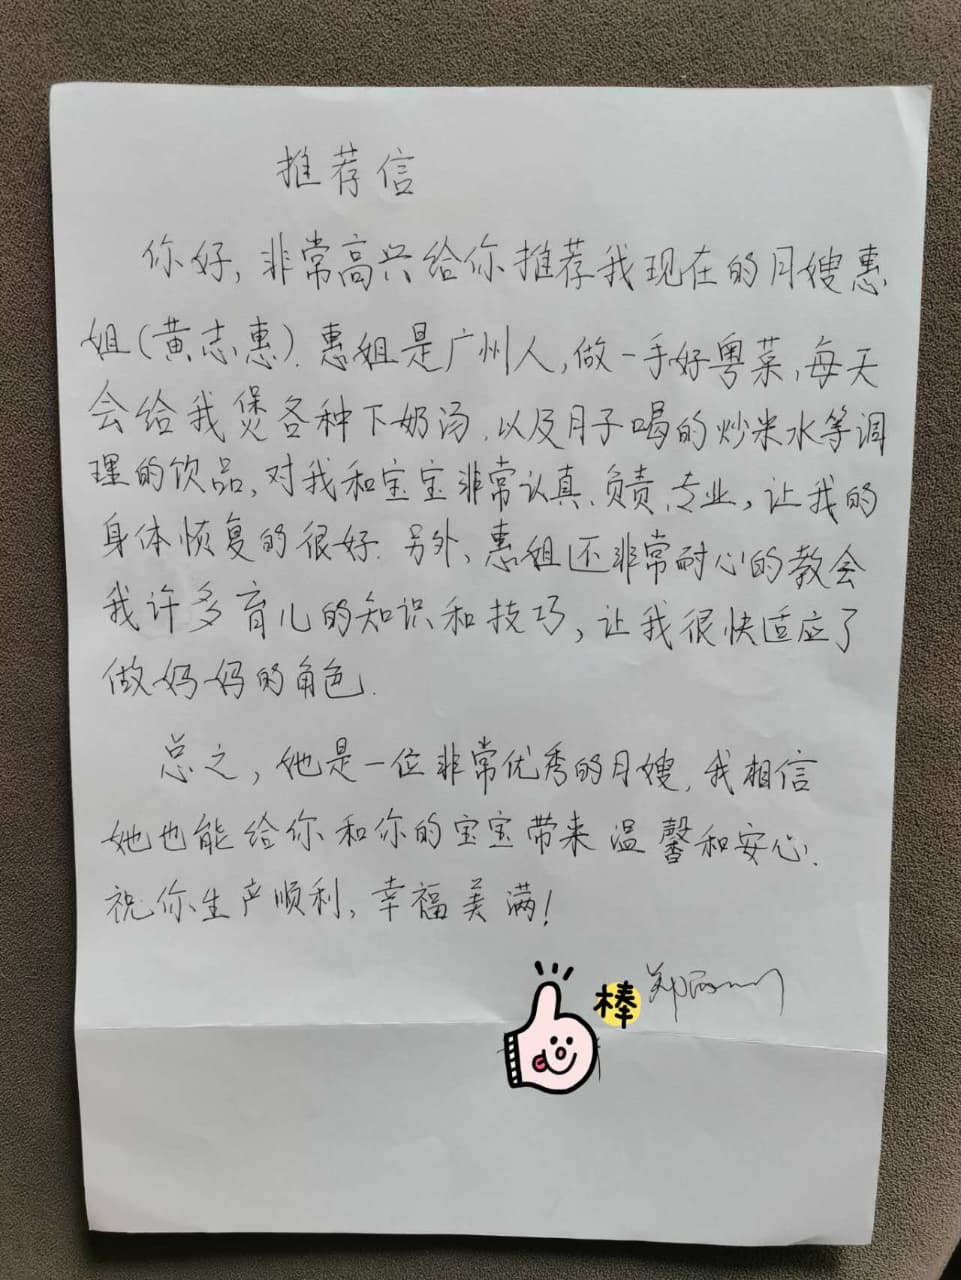 推荐信
你好，非常高兴给你推荐我现在的月嫂惠
姐（黄志惠）. 惠姐是广州人，做一手好粤菜，每天
会给我煲各种下奶汤、以及月子喝的炒米水等调
理的饮品，对我和宝宝非常认真、负责、专业，让我的
身体恢复的很好. 另外，惠姐还非常耐心的教会
我许多育儿的知识和技巧，让我很快适应了
做妈妈的角色.
总之，她是一位非常优秀的月嫂，我相信
她也能给你和你的宝宝带来温馨和安心.
祝你生产顺利，幸福美满！
棒